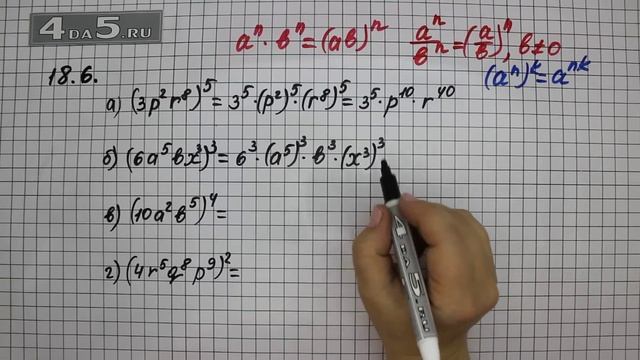 4DA5.RU
aⁿ · bⁿ = (ab)ⁿ aⁿ/bⁿ = (a/b)ⁿ, b≠0
(aⁿ)ᵏ = aⁿᵏ
18.6.
а) (3p²r⁸)⁵ = 3⁵ · (p²)⁵ · (r⁸)⁵ = 3⁵ · p¹⁰ · r⁴⁰
б) (6a⁵bx³)³ = 6³ · (a⁵)³ · b³ · (x³)³
в) (10a²b⁵)⁴ =
г) (4r⁵q⁸p⁹)² =
4DA5.RU